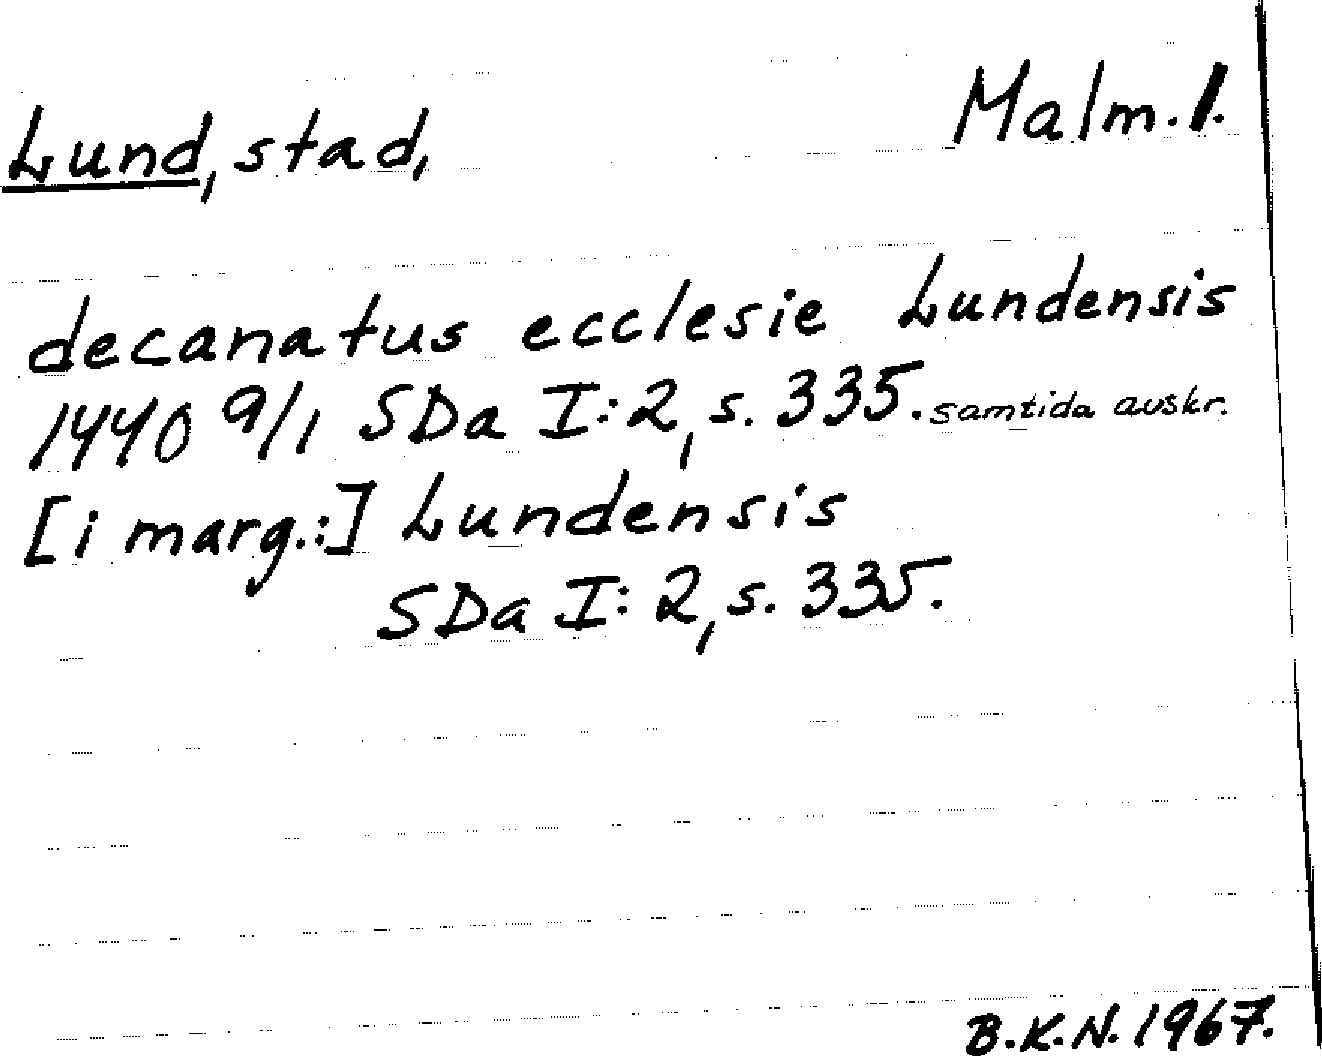 Lund, stad, Malm. l.
decanatus ecclesie Lundensis
1440 9/1 SDa I:2, s. 335. samtida avskr.
[i marg.:] Lundensis
SDa I:2, s. 335.
B.K.N. 1967.